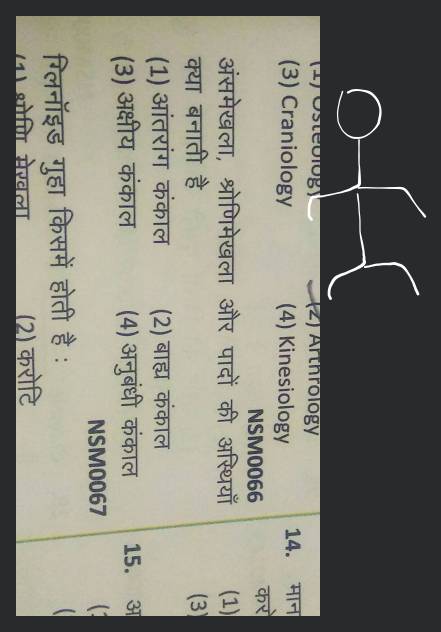 (1) Osteology (2) Arthrology
(3) Craniology (4) Kinesiology
NSM0066
अंसमेखला, श्रोणिमेखला और पादों की अस्थियाँ
क्या बनाती है
(1) आंतरांग कंकाल (2) बाह्य कंकाल
(3) अक्षीय कंकाल (4) अनुबंधी कंकाल
NSM0067
ग्लिनॉइड गुहा किसमें होती है :
(1) श्रोणि मेखला (2) करोटि
14. मान
करे
(1)
(3)
15. अ